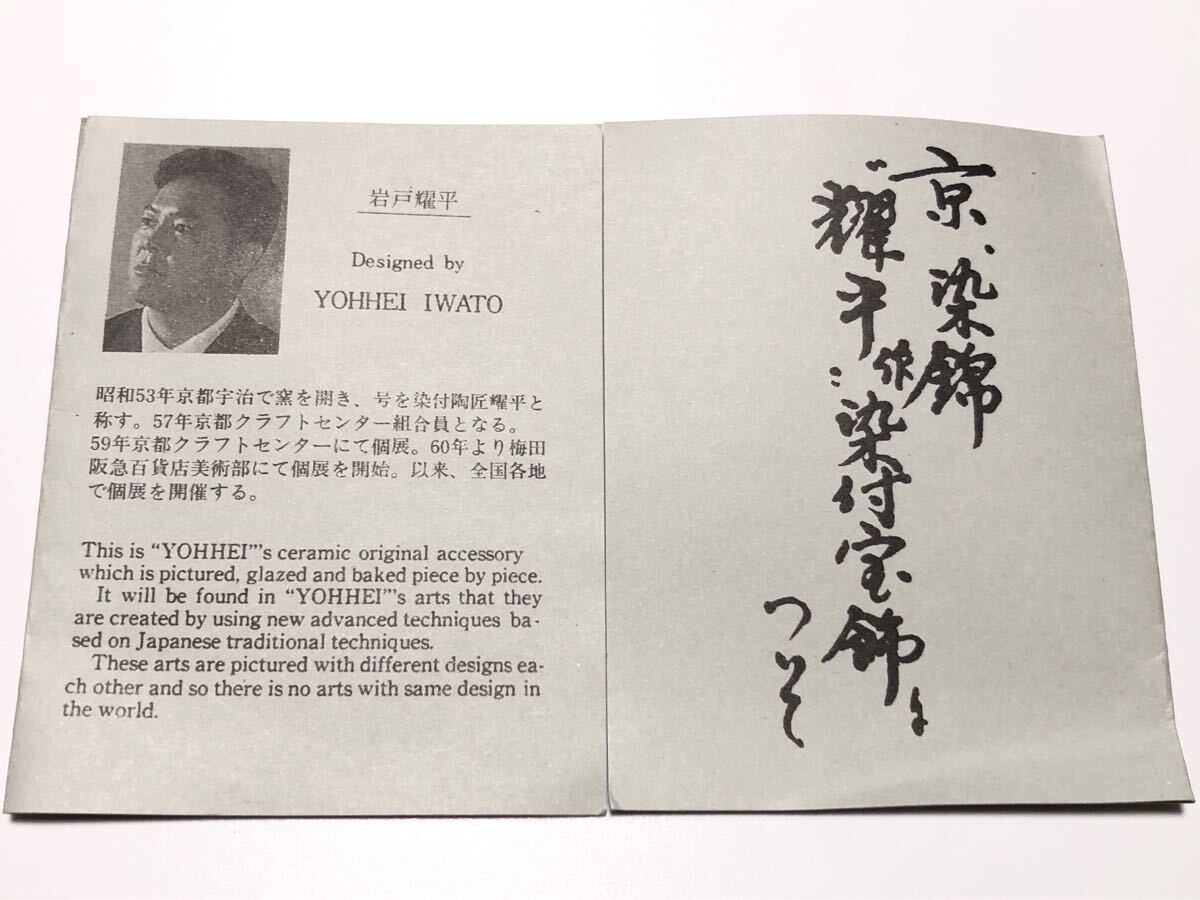 岩戸耀平
Designed by
YOHHEI IWATO
昭和53年京都宇治で窯を開き、号を染付陶匠耀平と
称す。57年京都クラフトセンター組合員となる。
59年京都クラフトセンターにて個展。60年より梅田
阪急百貨店美術部にて個展を開始。以来、全国各地
で個展を開催する。
This is “YOHHEI”'s ceramic original accessory
which is pictured, glazed and baked piece by piece.
It will be found in “YOHHEI”'s arts that they
are created by using new advanced techniques ba-
sed on Japanese traditional techniques.
These arts are pictured with different designs ea-
ch other and so there is no arts with same design in
the world.
京、染錦
“耀平作”染付宝飾に
ついて